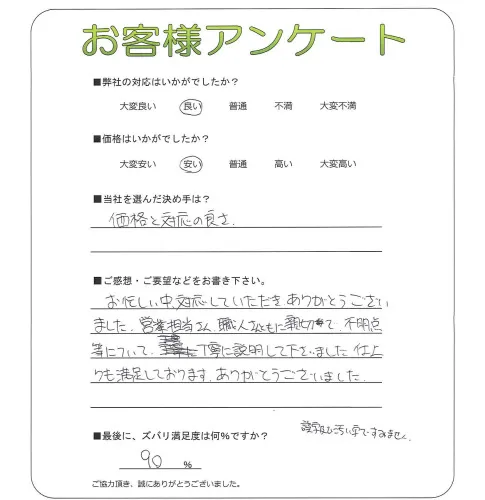 お客様アンケート
■弊社の対応はいかがでしたか？
大変良い 良い 普通 不満 大変不満
■価格はいかがでしたか？
大変安い 安い 普通 高い 大変高い
■当社を選んだ決め手は？
価格と対応の良さ.
■ご感想・ご要望などをお書き下さい。
お忙しい中、対応していただき ありがとうござい
ました. 営業担当さん、職人さんともに親切で、不明点
等について、丁寧に説明して下さいました 仕上
りも満足しております. ありがとうございました.
■最後に、ズバリ満足度は何％ですか？
90 ％
汚い字ですみません.
ご協力頂き、誠にありがとうございました。